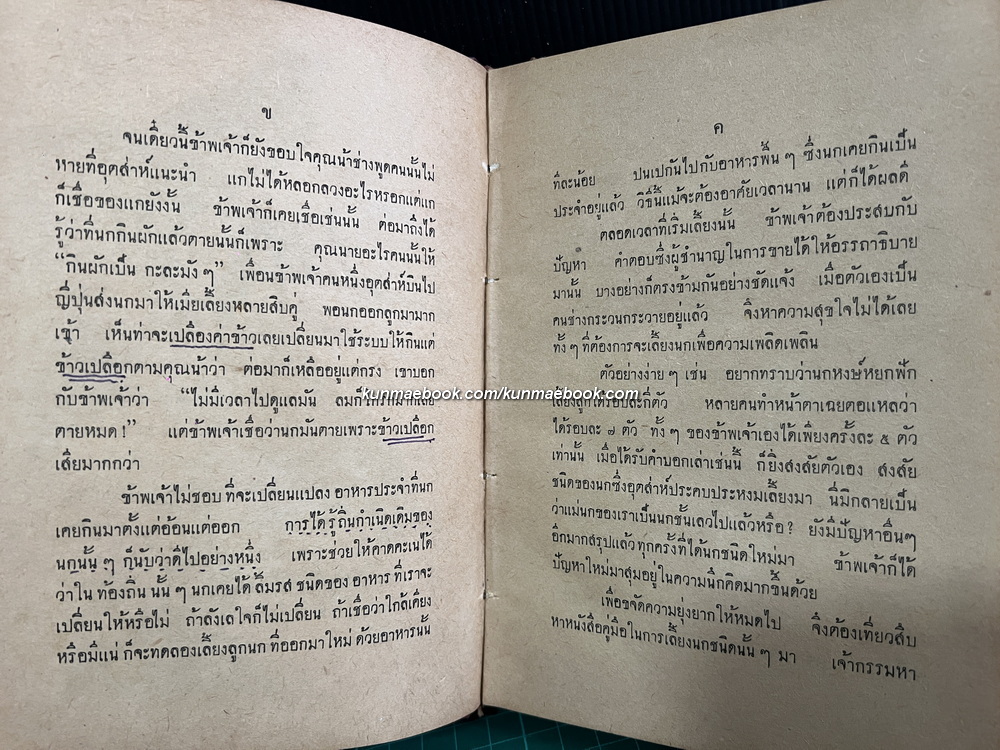 ข
จนเดี๋ยวนี้ข้าพเจ้าก็ยังขอบใจคุณน้าช่างพูดคนนั้นไม่
หายที่อุตส่าห์แนะนำ แกไม่ได้หลอกลวงอะไรหรอกแต่แก
ก็เชื่อของแกยังงั้น ข้าพเจ้าก็เคยเชื่อเช่นนั้น ต่อมาถึงได้
รู้ว่าที่นกกินผักแล้วตายนั้นก็เพราะ คุณนายอะไรคนนั้นให้
“กินผักเป็น กะละมัง ๆ” เพื่อนข้าพเจ้าคนหนึ่งอุตส่าห์บินไป
ญี่ปุ่นส่งนกมาให้เมียเลี้ยงหลายสิบคู่ พอนกออกลูกมามาก
เข้า เห็นท่าจะเปลืองค่าข้าวเลยเปลี่ยนมาใช้ระบบให้กินแต่
ข้าวเปลือกตามคุณน้าว่า ต่อมาก็เหลืออยู่แต่กรง เขาบอก
กับข้าพเจ้าว่า “ไม่มีเวลาไปดูแลมัน
ตายหมด!” แต่ข้าพเจ้าเชื่อว่านกมันตายเพราะข้าวเปลือก
เสียมากกว่า
ข้าพเจ้าไม่ชอบ ที่จะเปลี่ยนแปลง อาหารประจำที่นก
เคยกินมาตั้งแต่อ้อนแต่ออก การได้ รู้ถิ่นกำเนิดเดิมของ
นกนั้น ๆ ก็นับว่าดีไปอย่างหนึ่ง เพราะช่วยให้คาดคะเนได้
ว่าใน ท้องถิ่น นั้น ๆ นกเคยได้ ลิ้มรส ชนิดของ อาหาร ที่เราจะ
เปลี่ยนให้หรือไม่ ถ้าลังเลใจก็ไม่เปลี่ยน ถ้าเชื่อว่าใกล้เคียง
หรือมีแน่ ก็จะทดลองเลี้ยงลูกนก ที่ออกมาใหม่ ด้วยอาหารนั้น
ค
ทีละน้อย ปนเปกันไปกับอาหารพื้น ๆ ซึ่งนกเคยกินเป็น
ประจำอยู่แล้ว วิธีนี้แม้จะต้องอาศัยเวลานาน แต่ก็ได้ผลดี
ตลอดเวลาที่เริ่มเลี้ยงนั้น ข้าพเจ้าต้องประสบกับ
ปัญหา คำตอบซึ่งผู้ชำนาญในการขายได้ให้อรรถาธิบาย
มานั้น บางอย่างก็ตรงข้ามกันอย่างชัดแจ้ง เมื่อตัวเองเป็น
คนช่างกระวนกระวายอยู่แล้ว จึงหาความสุขใจไม่ได้เลย
ทั้ง ๆ ที่ต้องการจะเลี้ยงนกเพื่อความเพลิดเพลิน
ตัวอย่างง่าย ๆ เช่น อยากทราบว่านกหงษ์หยกฟัก
kunmaebook.com/kunmaebook.com
เลี้ยงลูกได้รอบละกี่ตัว หลายคนทำหน้าตาเฉยตอแหลว่า
ได้รอบละ ๗ ตัว ทั้ง ๆ ของข้าพเจ้าเองได้เพียงครั้งละ ๕ ตัว
เท่านั้น เมื่อได้รับคำบอกเล่าเช่นนี้ ก็ยิ่งสงสัยตัวเอง สงสัย
ชนิดของนกซึ่งอุตส่าห์ประคบประหงมเลี้ยงมา นี่มิกลายเป็น
ว่าแม่นกของเราเป็นนกชั้นเลวไปแล้วหรือ? ยังมีปัญหาอื่นๆ
อีกมากสรุปแล้ว ทุกครั้งที่ได้นกชนิดใหม่มา ข้าพเจ้าก็ได้
ปัญหาใหม่มาสุมอยู่ในความนึกคิดมากขึ้นด้วย
เพื่อขจัดความยุ่งยากให้หมดไป จึงต้องเที่ยวสืบ
หาหนังสือคู่มือในการเลี้ยงนกชนิดนั้น ๆ มา เจ้ากรรมหา